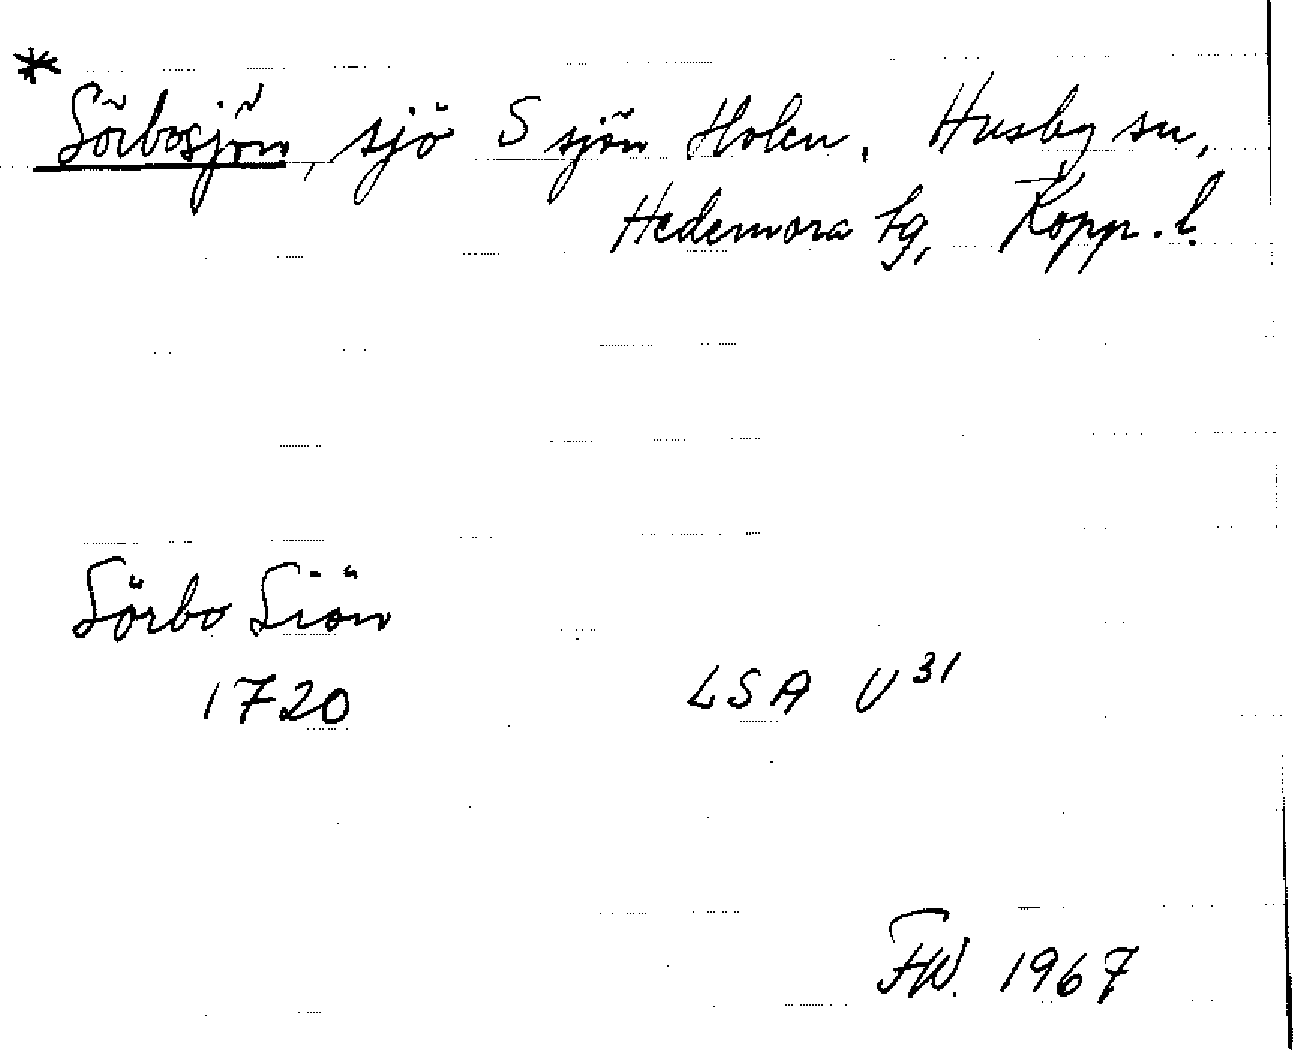 *
Sörbosjön, sjö S sjön Holen. Husby sn,
Hedemora tg, Kopp. l.
Sörbo Siön
1720 LSA U 31
FW. 1967